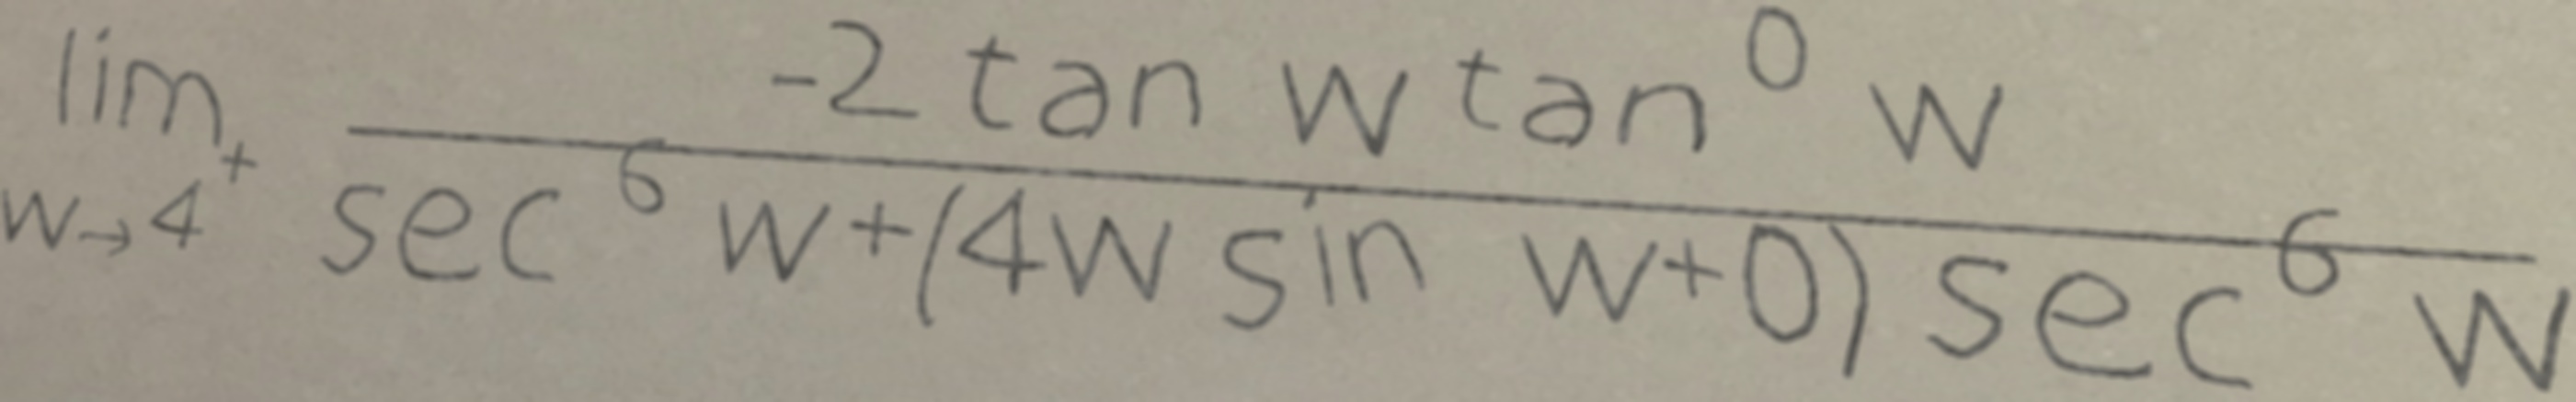 \lim_{w \to 4^+} \frac{-2 \tan w \tan^0 w}{\sec^6 w + (4w \sin w + 0) \sec^6 w}